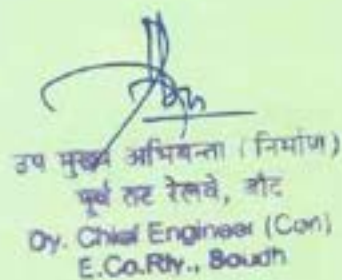 उप मुख्य अभियन्ता (निर्माण)
पूर्व तट रेलवे, बौद
Dy. Chief Engineer (Con)
E.Co.Rly., Boudh